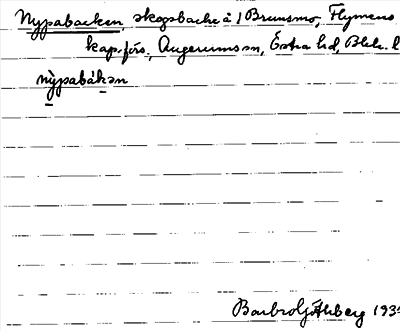 Nypabacken, skogsbacke å 1 Brunsmo, Flymens
kap.förs., Augerums sn, Östra hd, Blek. l
nỳpabákən
Barbro Ahlberg 193